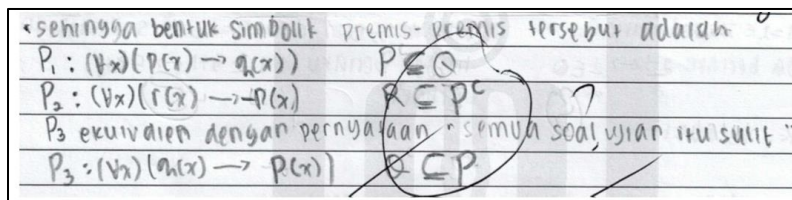 sehingga bentuk simbolik premis-premis tersebut adalah
P₁ : (∀x)(P(x) → q(x)) P ⊆ Q
P₂ : (∀x)(r(x) → ~P(x) R ⊆ Pᶜ
P₃ ekuivalen dengan pernyataan "semua soal ujian itu sulit"
P₃ : (∀x)(q(x) → P(x)) Q ⊆ P